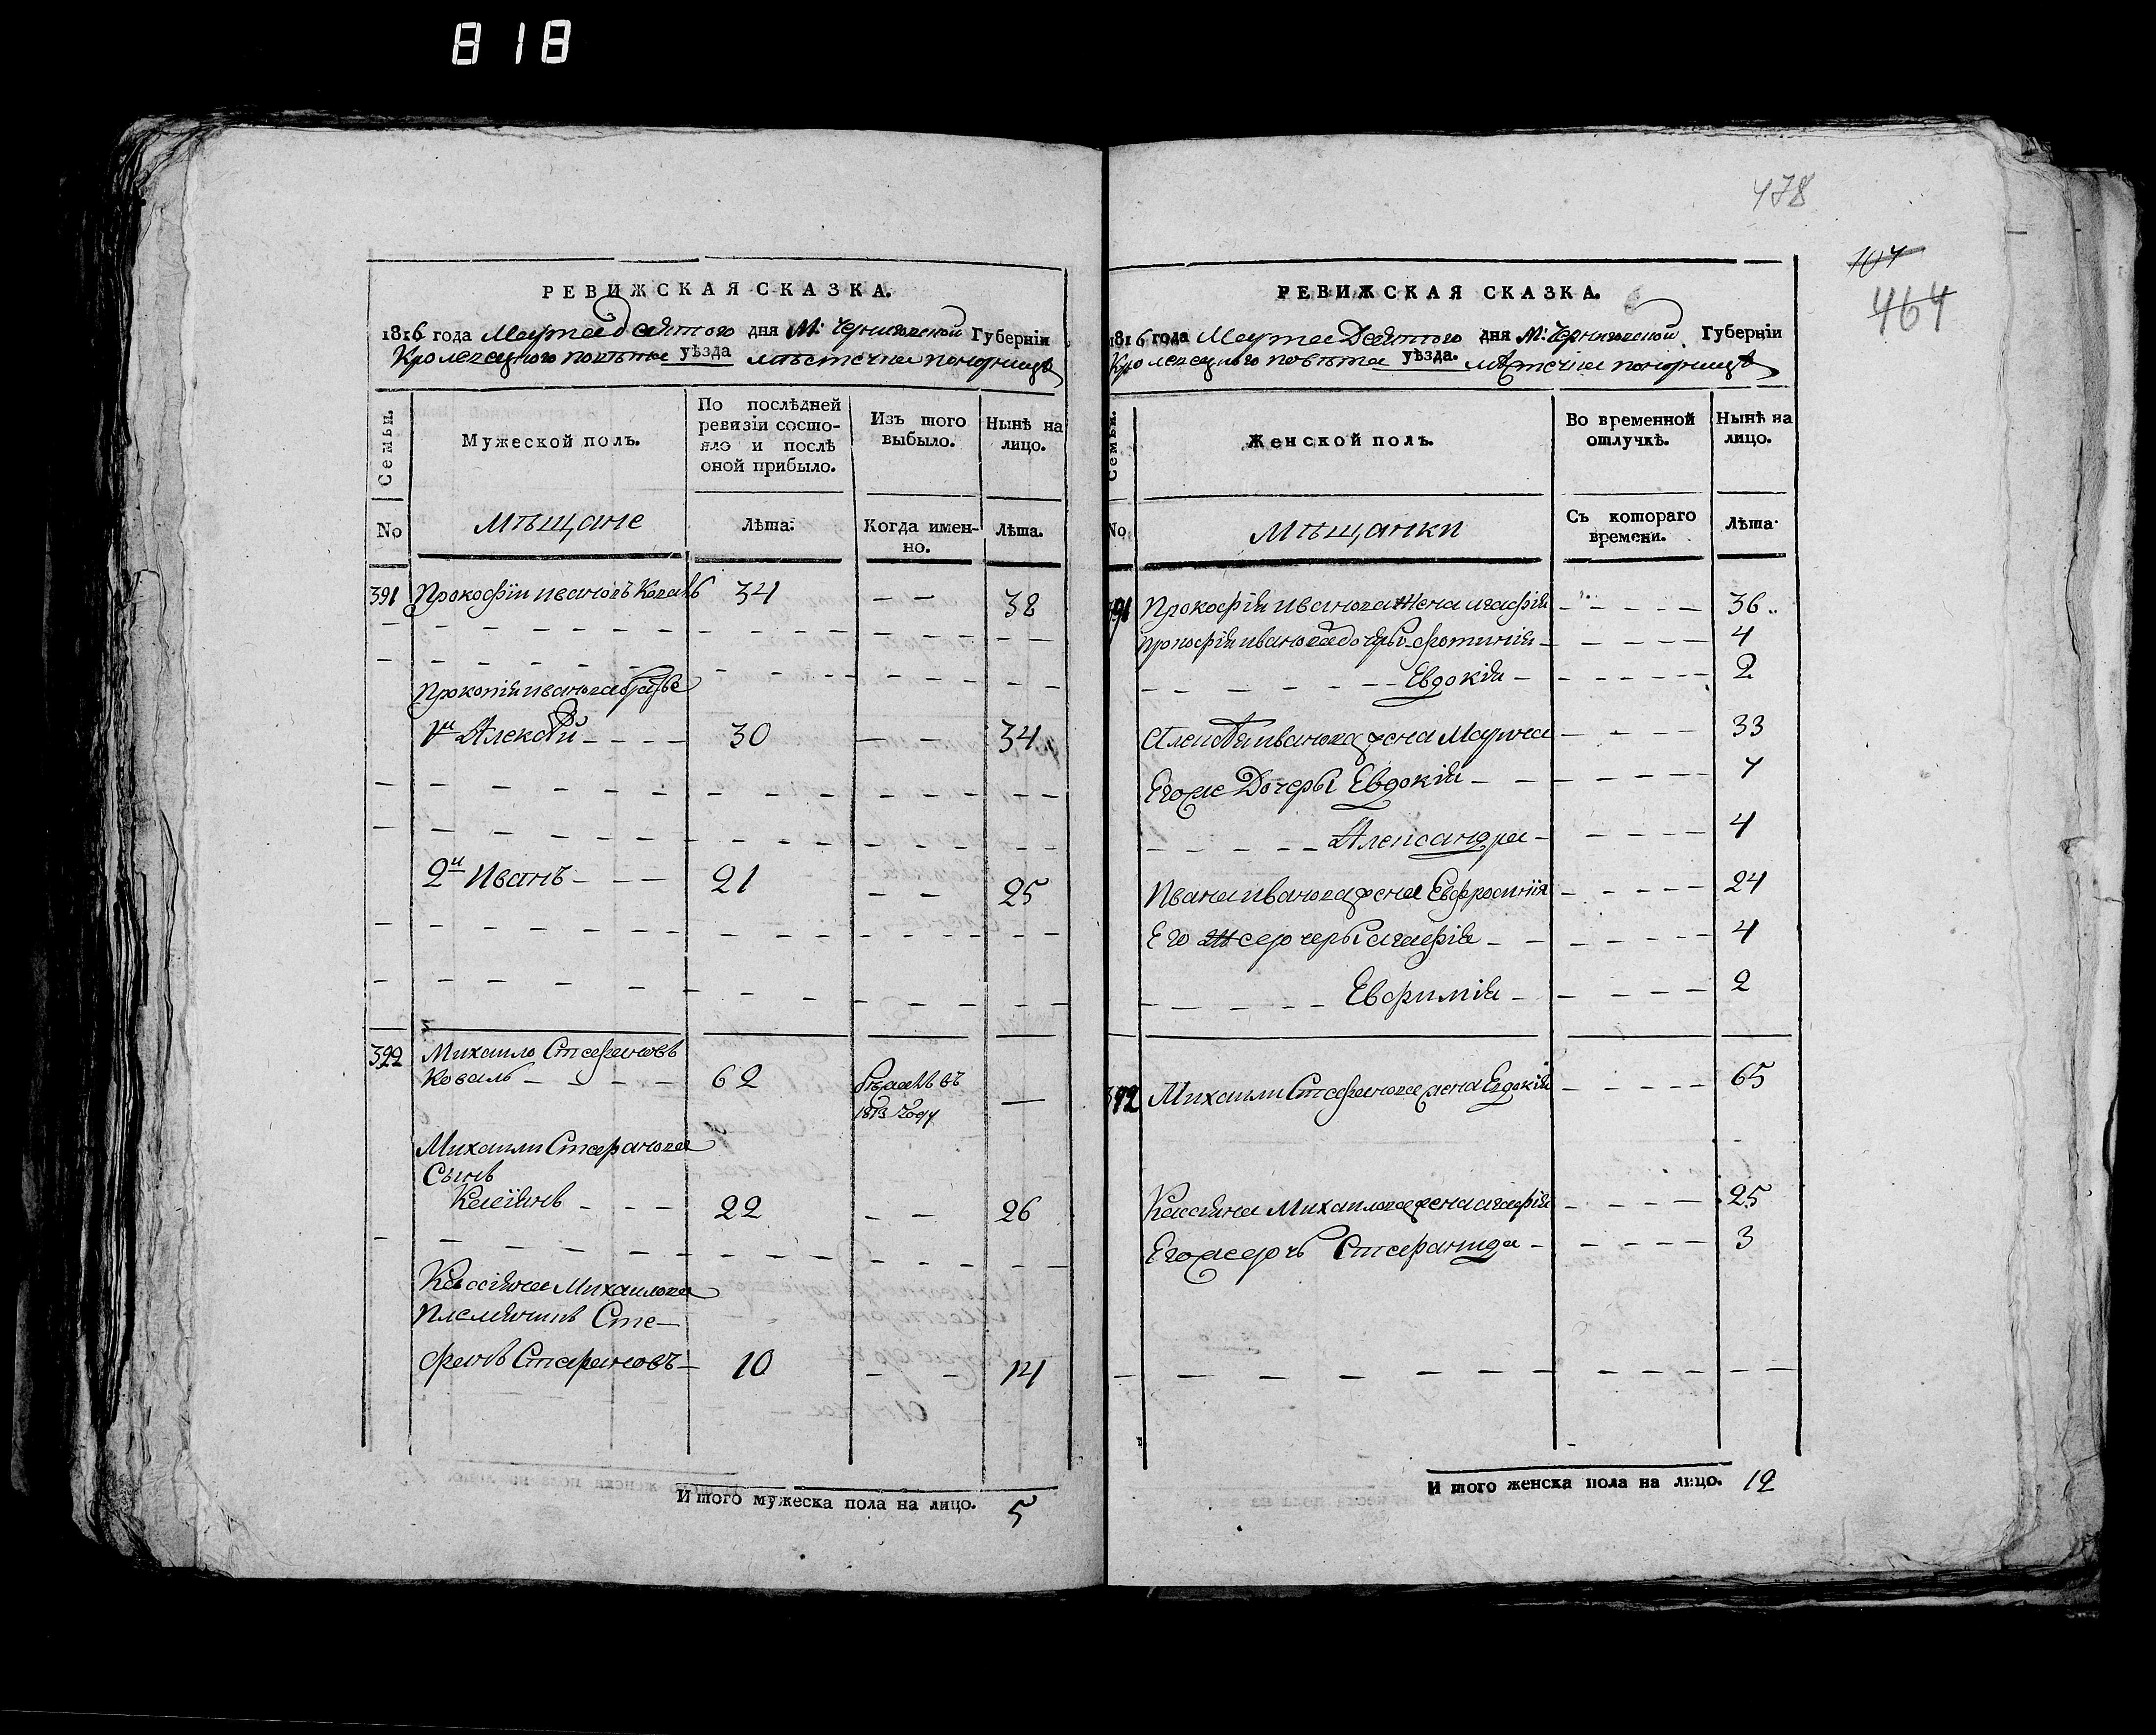 818
РЕВИЖСКАЯ СКАЗКА.
1816 года Марта девятого дня М: Черниговской Губерніи
Кролевецкого повѣта уѣзда мѣстечка понорницѣ
Семьи.
Мужеской полъ.
По послѣдней ревизіи состояло и послѣ оной прибыло.
Изъ того выбыло.
Нынѣ на лицо.
No
Мѣщане
Лѣта.
Когда именно.
Лѣта.
391 Прокофіи ивановъ Коваль 34 — — 38
Прокопія иванова братья
1и Алексѣй 30 — — 34
2и Иванъ 21 — — 25
392 Михаило Стефановъ
Коваль 62 въ —
1813 году
Михаили Стефанова
Сынъ
Касіянъ 22 — — 26
Кассіяна Михаилова
племянникъ Сте—
фанъ Стефановъ 10 — — 14
И того мужеска пола на лицо. 5
478
104
464
РЕВИЖСКАЯ СКАЗКА.
1816 года Марта Девятого дня М: Черниговской Губерніи
Кролевецкого повѣта уѣзда. мѣстечка понорницѣ
Семьи.
Женской полъ.
Во временной отлучкѣ.
Нынѣ на лицо.
No
Мѣщанки
Съ котораго времени.
Лѣта.
391 Прокофія иванова Жена агафія 36
Прокофія иванова дочеры фотинія 4
Евдокія 2
Алексѣя иванова жена Марина 33
Егоже Дочеры Евдокія 7
Александра 4
Ивана иванова жена Евфросинія 24
Его же дочеры агафія 4
Евфимія 2
392 Михаили Стефанова жена Евдокія 65
Кассіяна Михаилова жена агафія 25
Егоже дочь Стефанида 3
И того женска пола на лицо. 12